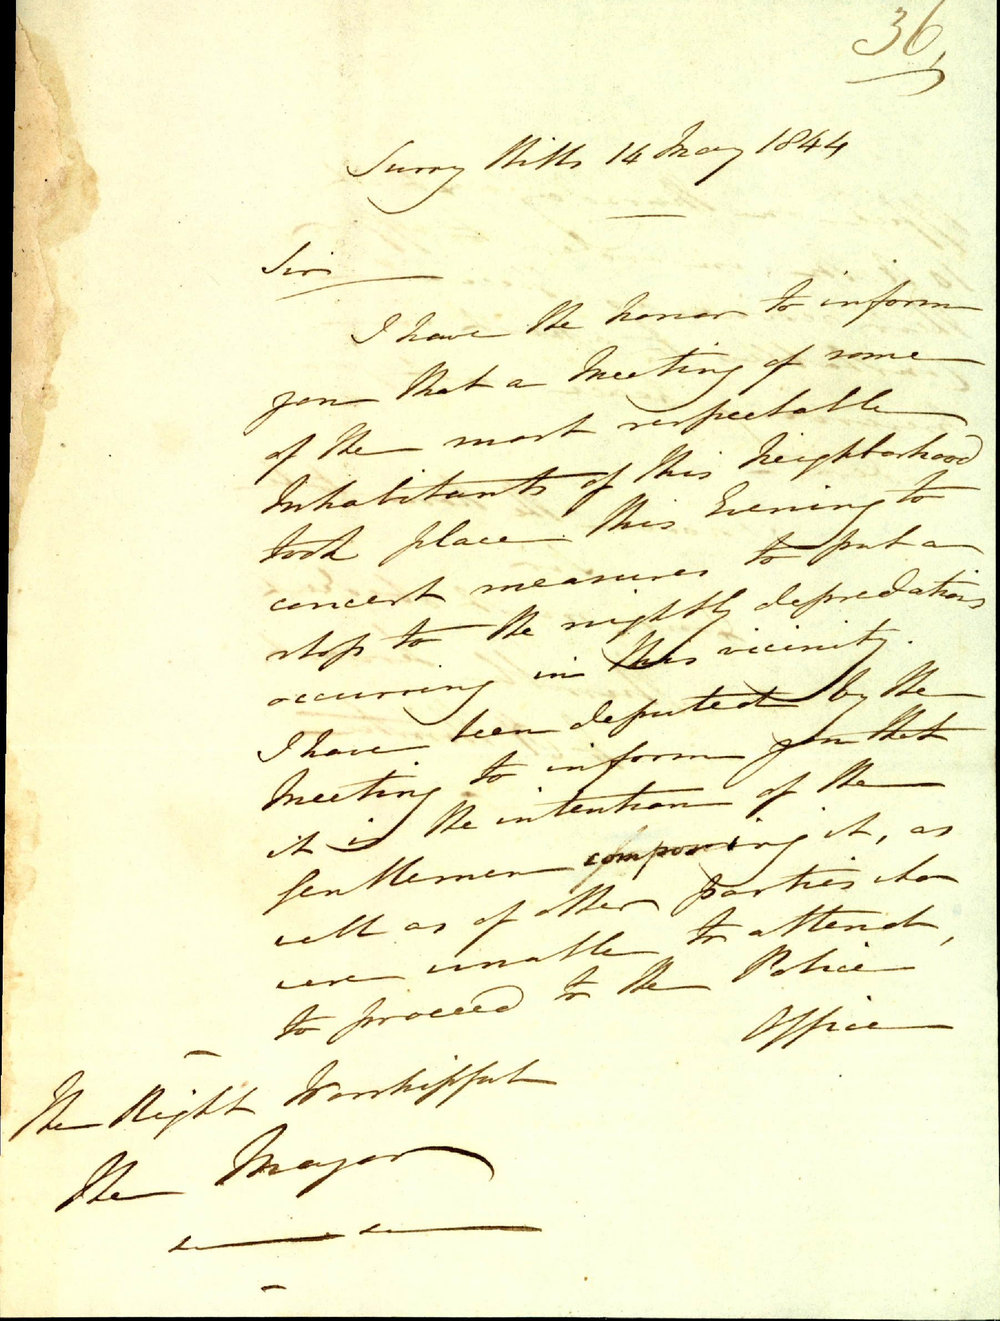 36
Surry Hills 14 May 1844
Sir
I have the honor to inform
you that a Meeting of some
of the most respectable
Inhabitants of this Neighborhood
took place this Evening to
concert measures to put a
stop to the nightly depredations
occurring in this vicinity.
I have been deputed by the
Meeting to inform you that
it is the intention of the
Gentlemen composing it, as
well as of other parties who
were unable to attend,
to proceed to the Police
Office
The Right Worshipful
The Mayor